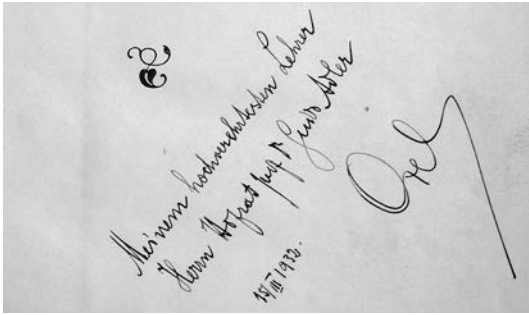 Meinem hochverehrtesten Lehrer
Herrn Hofrat Prof Dr Guido Adler
15/III 1932.
Orel